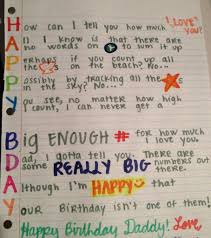 How can I tell you how much I LOVE YOU?
All I know is that there are
no words on to sum it up
Perhaps if you count up all
the on the beach? No...
Possibly by tracking all the
in the sky? No...
You see, no matter how high
I count, I can never get a
Big ENOUGH # for how much
I love you.
Dad, I gotta tell you. There are
some REALLY BIG numbers out there.
Although I'm HAPPY that
OUR Birthday isn't one of them!
Happy Birthday Daddy! Love,